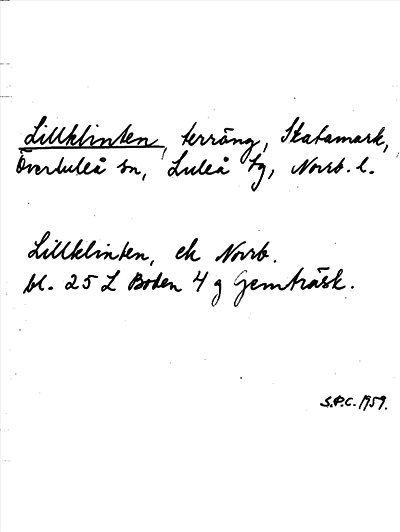 Lillklinten, terräng, Skatamark,
Överluleå sn, Luleå tg, Norrb. l.
Lillklinten, ek Norrb.
bl. 25 L Boden 4 g Gemträsk.
S.P.C. 1959.